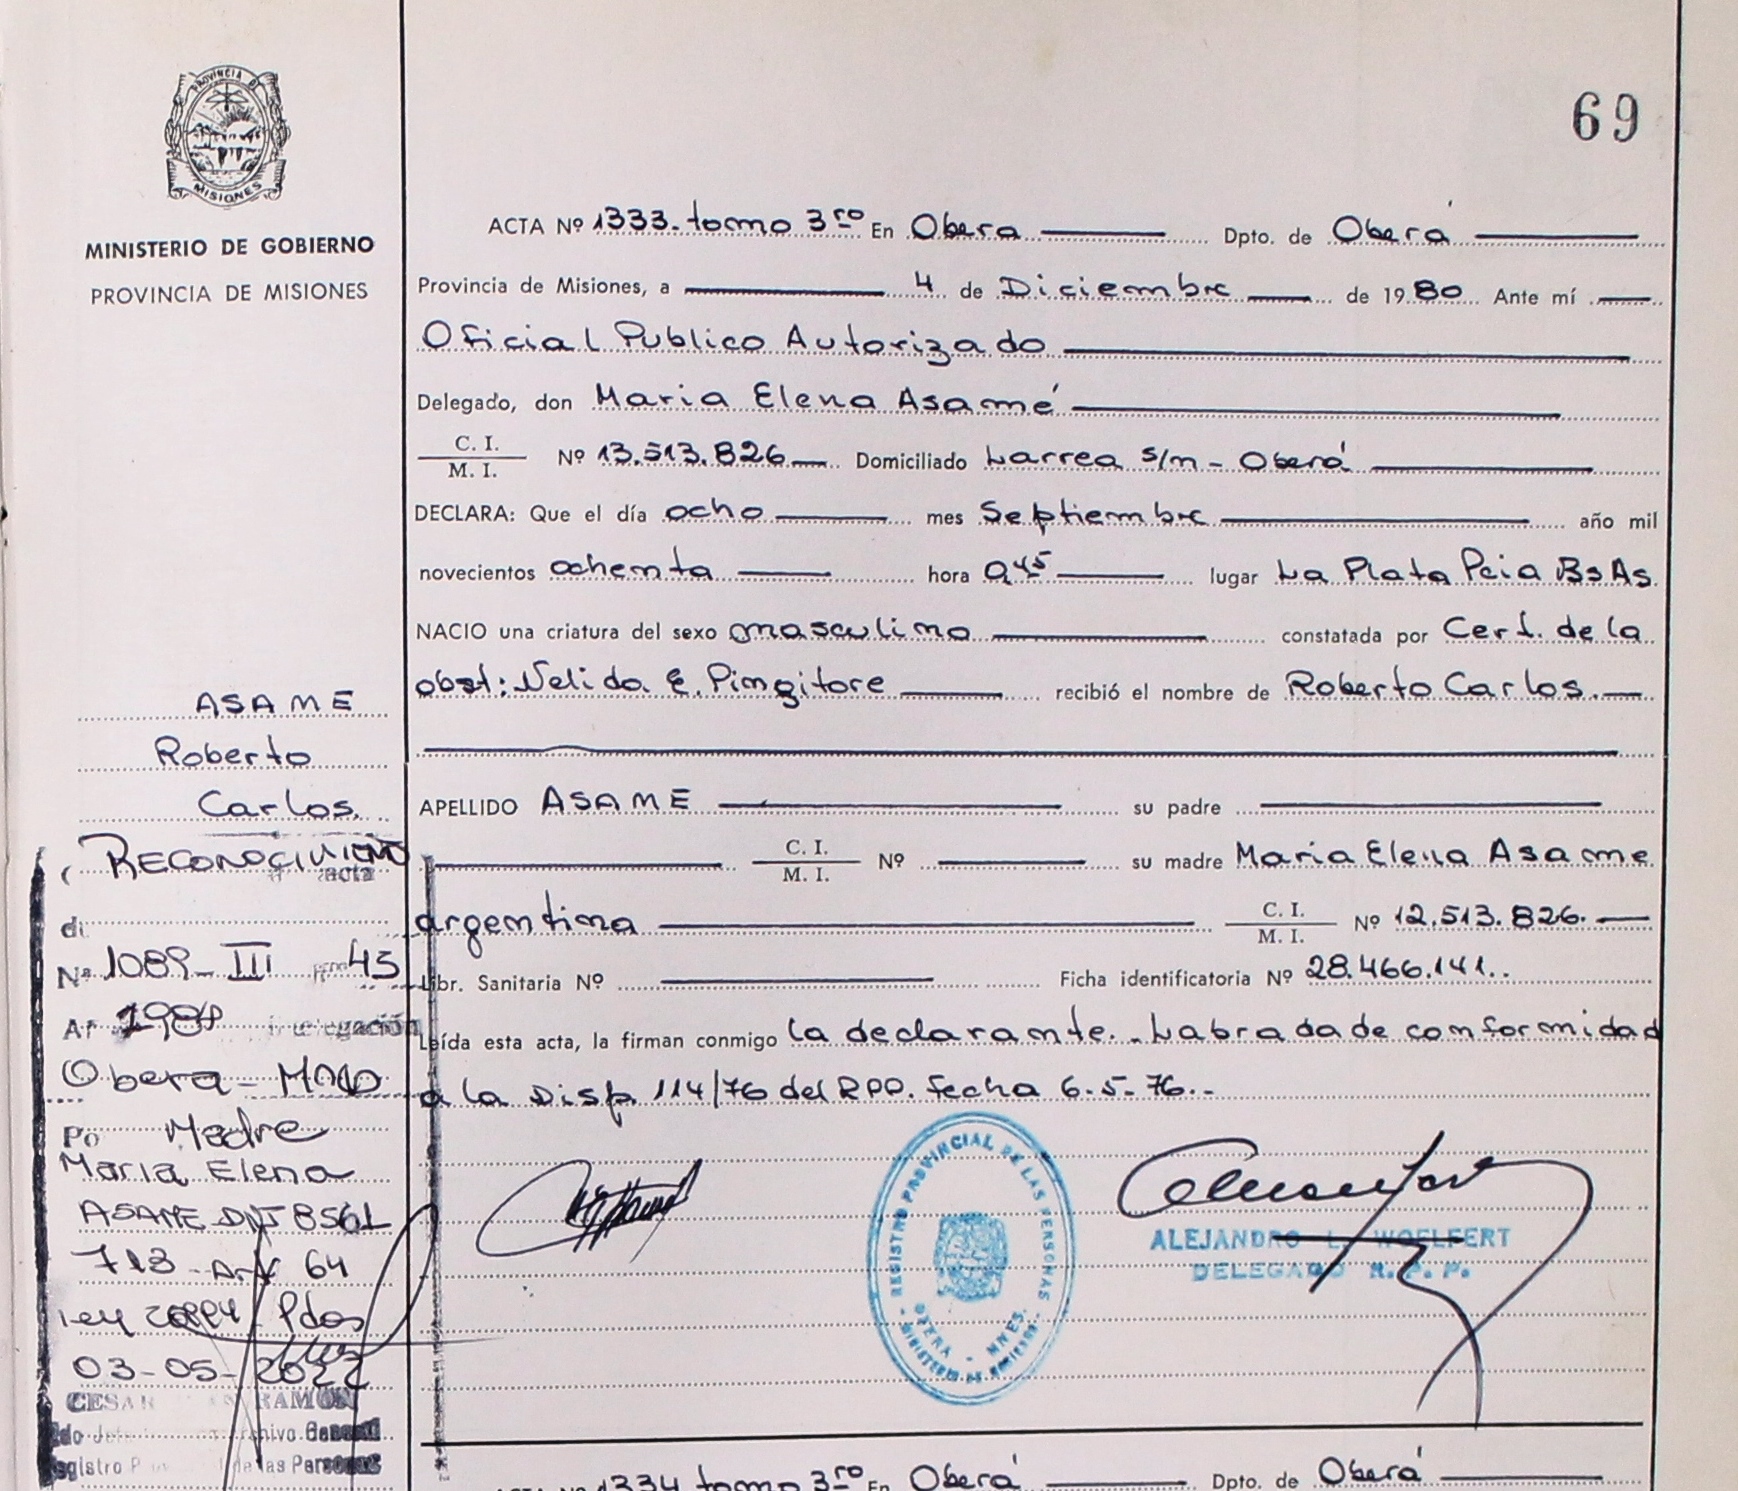 PROVINCIA D
MISIONES
MINISTERIO DE GOBIERNO
PROVINCIA DE MISIONES
69
ACTA Nº 1333. tomo 3ro En Obera Dpto. de Oberá
Provincia de Misiones, a 4 de Diciembre de 1980 Ante mí
Oficial Publico Autorizado
Delegado, don Maria Elena Asamé
C. I.
M. I. Nº 13.513.826 Domiciliado Larrea s/n - Oberá
DECLARA: Que el día ocho mes Septiembre año mil
novecientos ochenta hora 0,45 lugar La Plata Pcia Bs As.
NACIO una criatura del sexo masculino constatada por Cert. de la
obst: Nelida E. Pingitore recibió el nombre de Roberto Carlos.
APELLIDO ASAME su padre
C. I.
M. I. Nº su madre Maria Elena Asame
argentina C. I.
M. I. Nº 12.513.826.
Libr. Sanitaria Nº Ficha identificatoria Nº 28.466.141..
Leída esta acta, la firman conmigo la declarante.- Labrada de conformidad
a la Disp. 114/76 del RPP. fecha 6-5-76.-
REGISTRO PROVINCIAL DE LAS PERSONAS
OBERA - MNES.
MINISTERIO DE
ALEJANDRO L. WOELFERT
DELEGADO R. P. P.
ASAME
Roberto
Carlos.
RECONOCIMIENTO
acta
Nº 1089- III 43
delegación
Obera -
Po Madre
Maria Elena
ASAME DNI 8561
713 - Art 64
ley Pdos
03-05-2022
CESAR RAMON
Archivo General
Registro P de las Personas
ACTA Nº 1334 tomo 3ro En Oberá Dpto. de Oberá